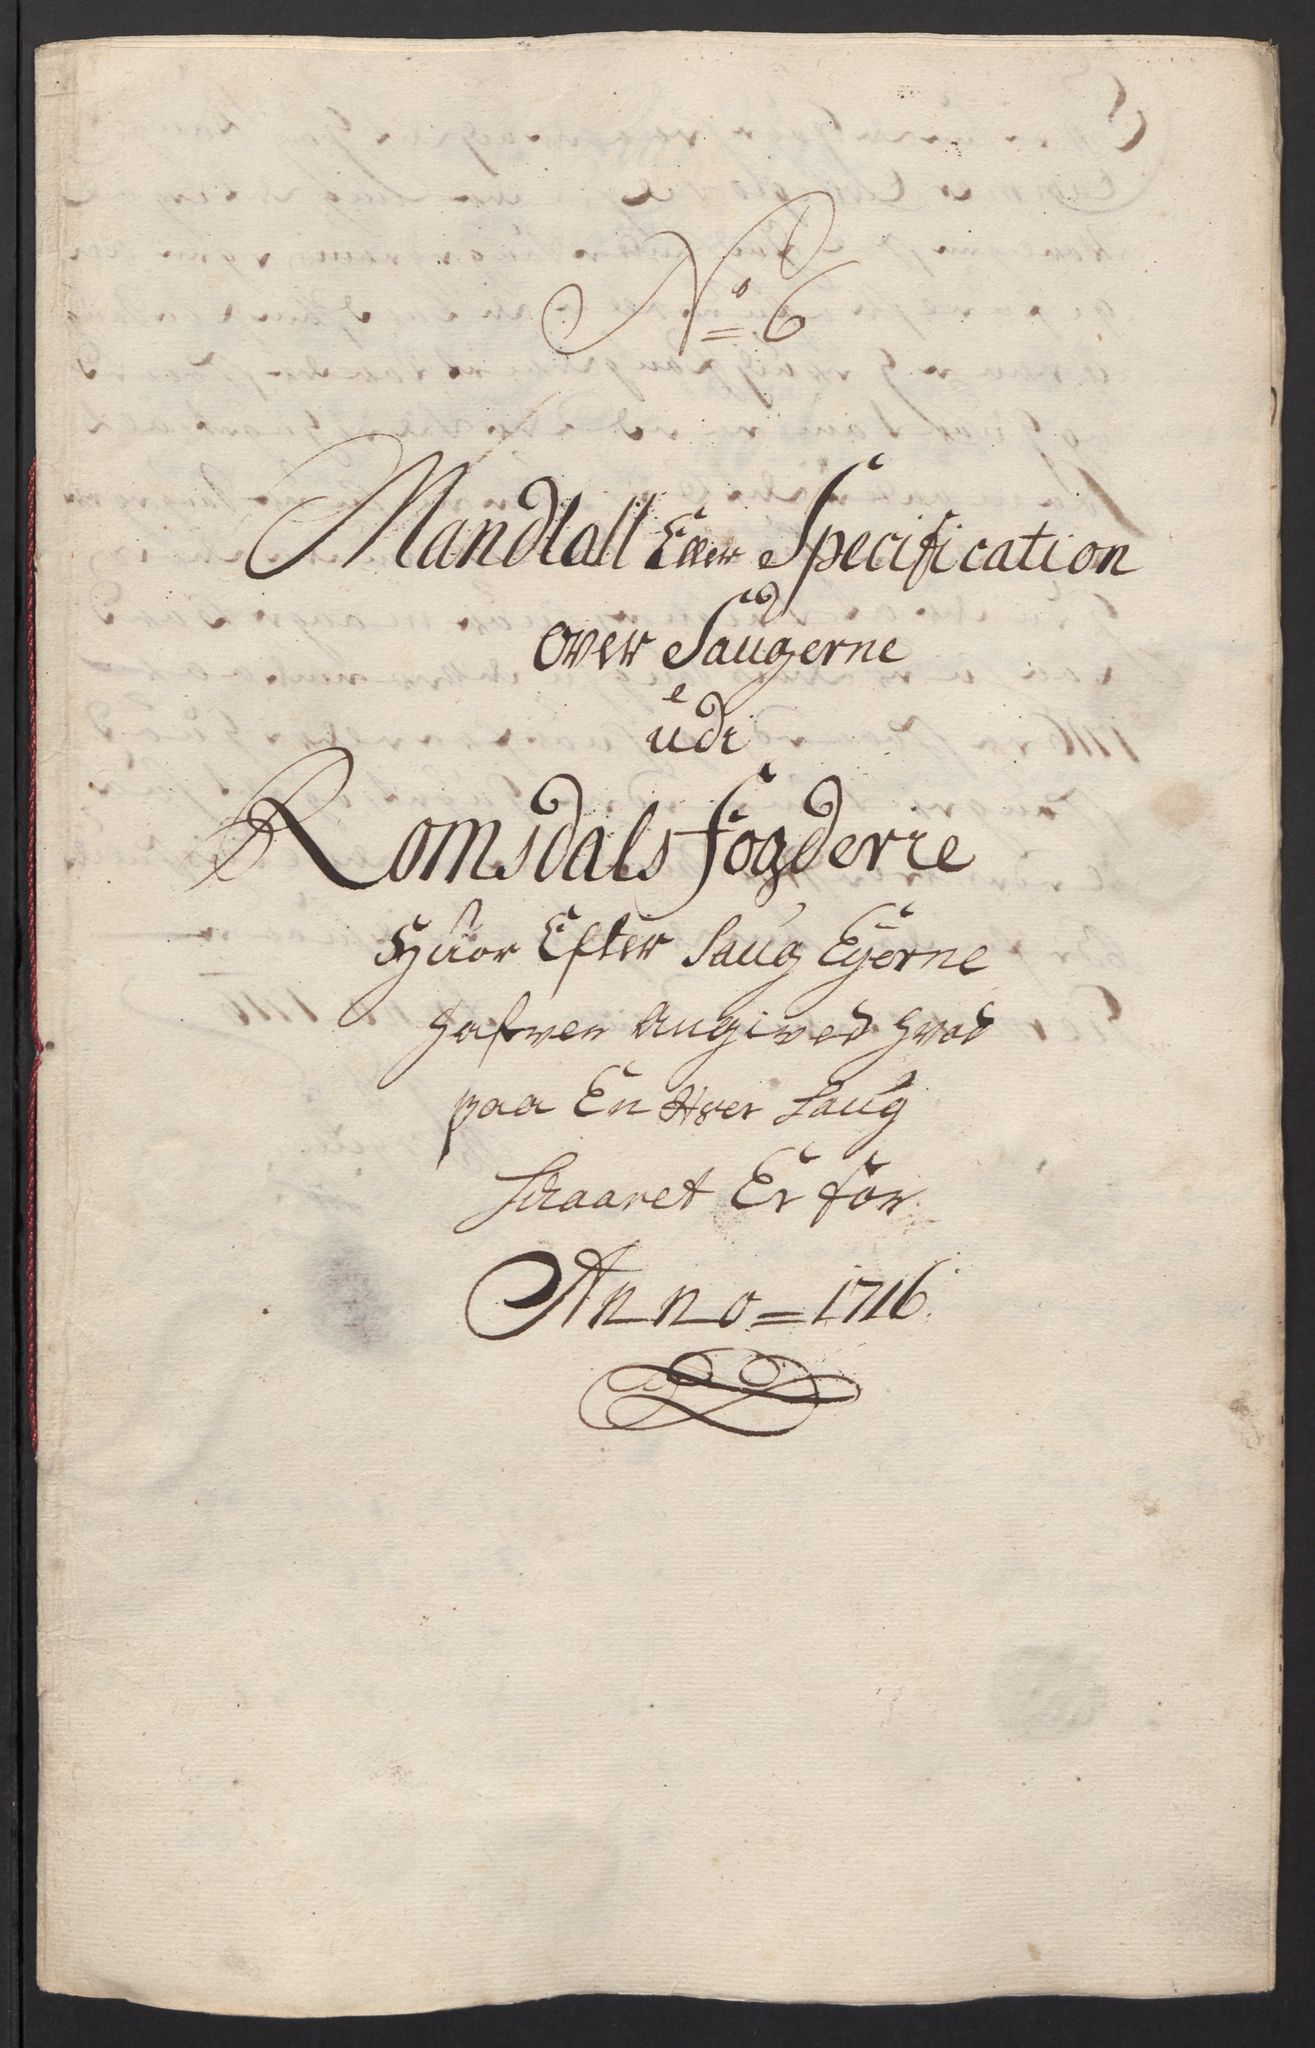 No 6
Mandtall Eller Specification
over Saugerne
udi
Romsdals fogderie
Huor Efter Saug Eyerne
hafver Angived hvad
paa En Hver Saug
Skaaret Er for
Anno = 1716.